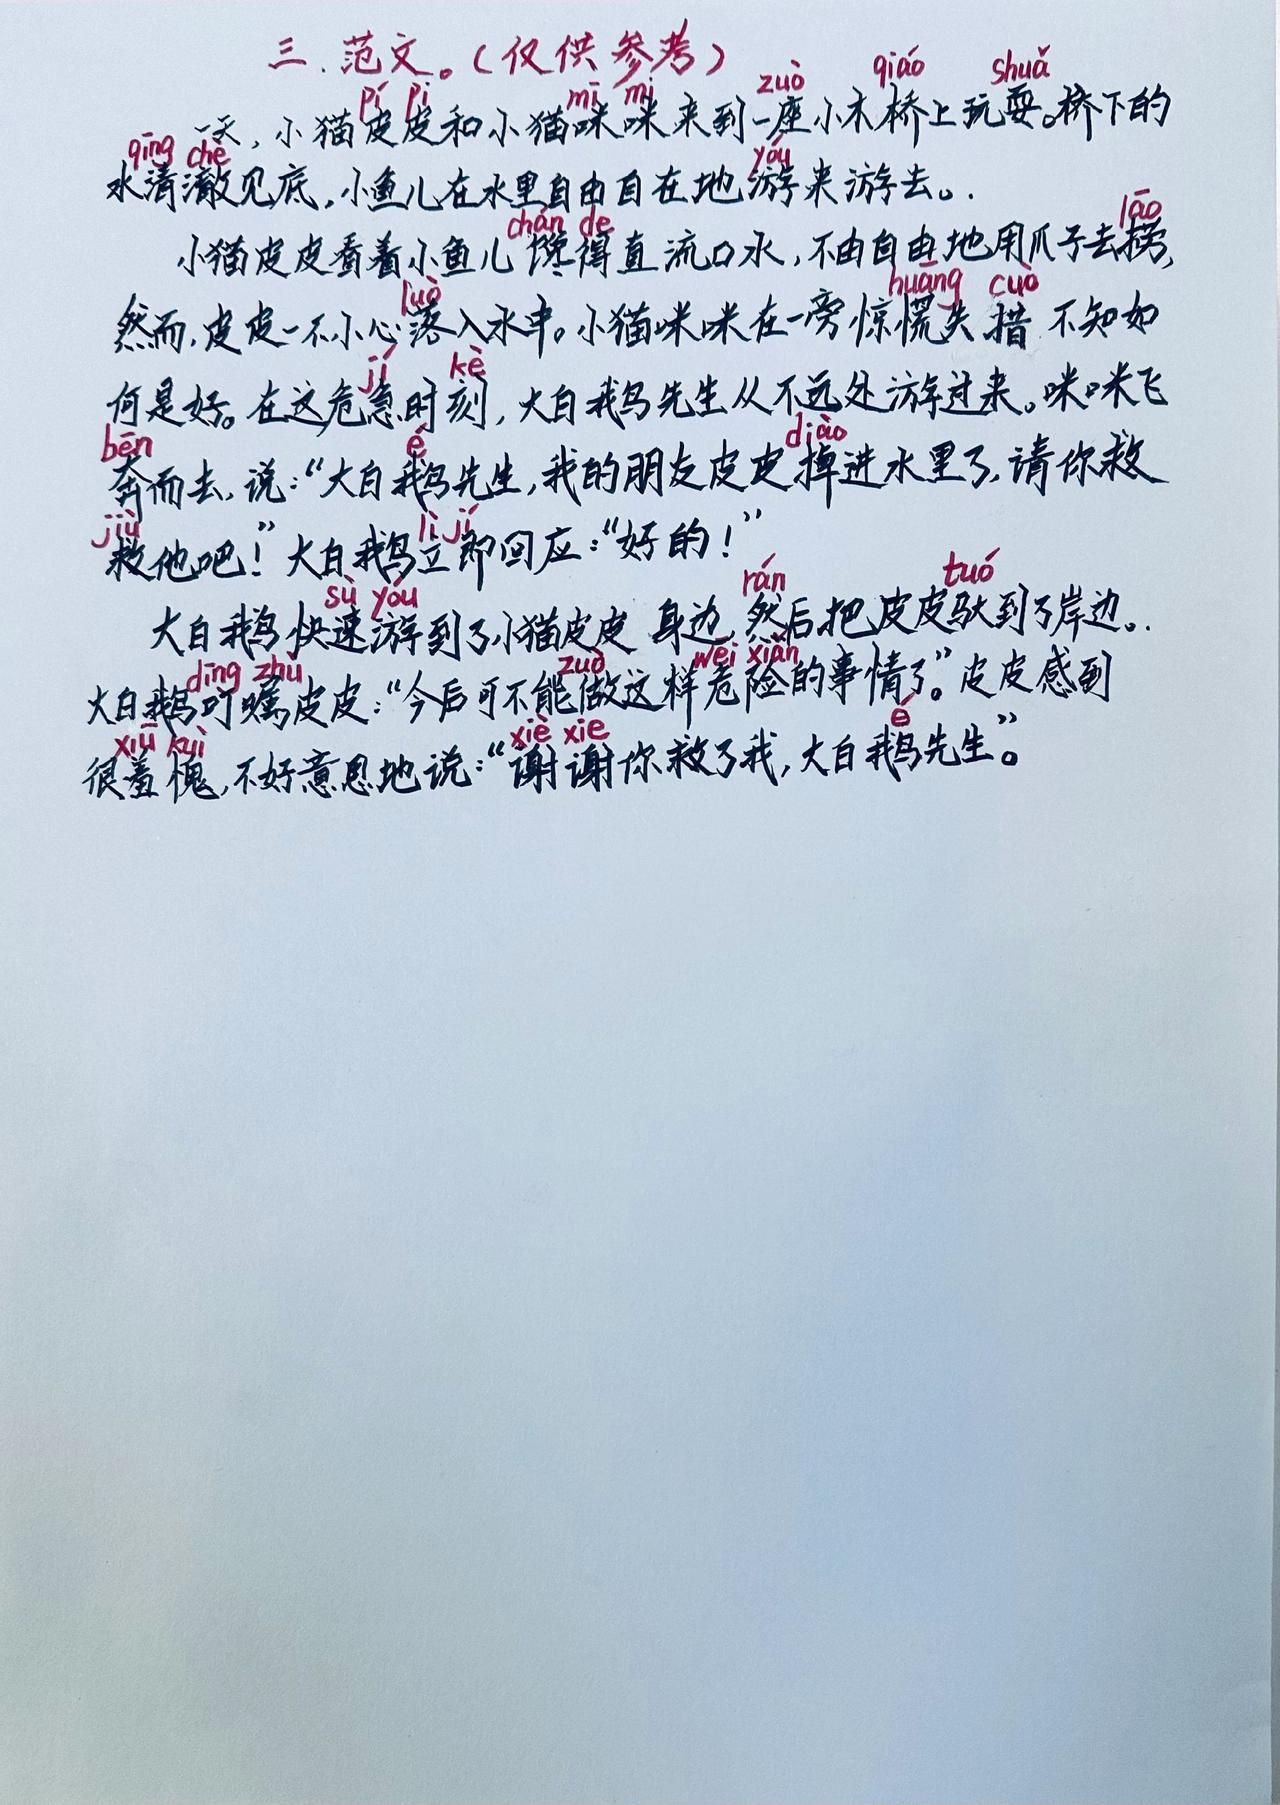 三.范文。(仅供参考)
pí pi mī mi zuò qiáo shuǎ
一天,小猫皮皮和小猫咪咪来到一座小木桥上玩耍。桥下的
qīng chè yóu
水清澈见底,小鱼儿在水里自由自在地游来游去。.
chán de lāo
小猫皮皮看着小鱼儿馋得直流口水,不由自由地用爪子去捞,
luò huāng cuò
然而,皮皮一不小心落入水中。小猫咪咪在一旁惊慌失措 不知如
jí kè
何是好。在这危急时刻,大白鹅先生从不远处游过来。咪咪飞
bēn é diào
奔而去,说:“大白鹅先生,我的朋友皮皮掉进水里了,请你救
jiù lì jí
救他吧!”大白鹅立即回应:“好的!”
sù yóu rán tuó
大白鹅快速游到了小猫皮皮 身边,然后把皮皮驮到了岸边。.
dīng zhǔ zuò wēi xiǎn
大白鹅叮嘱皮皮:“今后可不能做这样危险的事情了。”皮皮感到
xiū kuì xiè xie é
很羞愧,不好意思地说:“谢谢你救了我,大白鹅先生”。